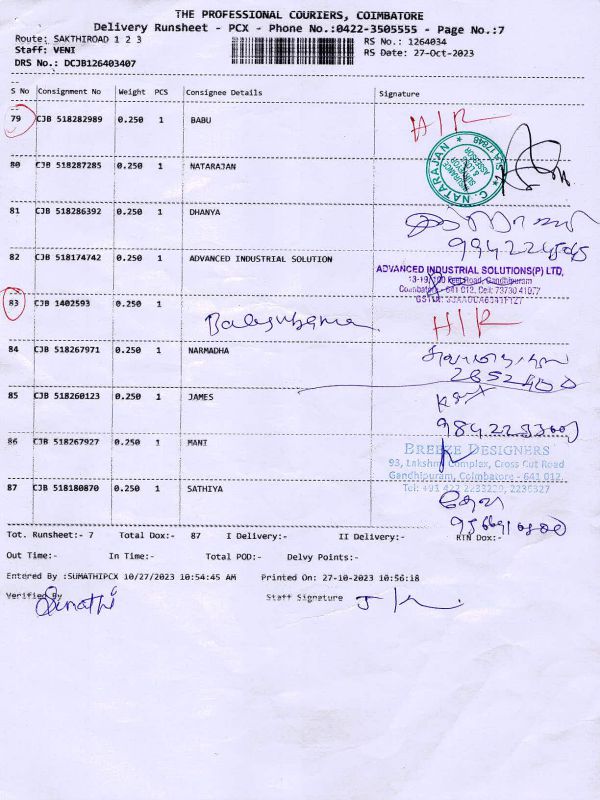 THE PROFESSIONAL COURIERS, COIMBATORE
Delivery Runsheet - PCX - Phone No.:0422-3505555 - Page No.:7
Route: SAKTHIROAD 1 2 3 RS No.: 1264034
Staff: VENI RS Date: 27-Oct-2023
DRS No.: DCJB126403407
S No Consignment No Weight PCS Consignee Details Signature
79 CJB 518282989 0.250 1 BABU H/R
80 CJB 518287285 0.250 1 NATARAJAN
C. NATARAJAN
INSURANCE
SURVEYOR
& LOSS
ASSESSOR
81 CJB 518286392 0.250 1 DHANYA
82 CJB 518174742 0.250 1 ADVANCED INDUSTRIAL SOLUTION
ADVANCED INDUSTRIAL SOLUTIONS(P) LTD,
13-19, 100 Feet Road, Gandhipuram
Coimbatore - 641 012, Cell: 73730 41077
83 CJB 1402593 0.250 1 H/R
84 CJB 518267971 0.250 1 NARMADHA
2852400
85 CJB 518260123 0.250 1 JAMES
86 CJB 518267927 0.250 1 MANI
BREEZE DESIGNERS
93, Lakshmi Complex, Cross Cut Road
Gandhipuram, Coimbatore - 641 012.
Tel: +91 422 2233220, 2236327
87 CJB 518180870 0.250 1 SATHIYA
Tot. Runsheet:- 7 Total Dox:- 87 I Delivery:- II Delivery:- RTN Dox:-
Out Time:- In Time:- Total POD:- Delvy Points:-
Entered By :SUMATHIPCX 10/27/2023 10:54:45 AM Printed On: 27-10-2023 10:56:18
Verified By Staff Signature